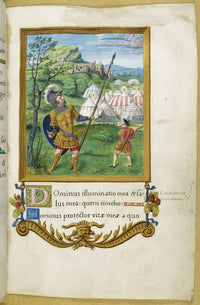 Dominus illuminatio mea & sa-
lus mea: quem timebo.
Dominus protector vitæ meæ a quo